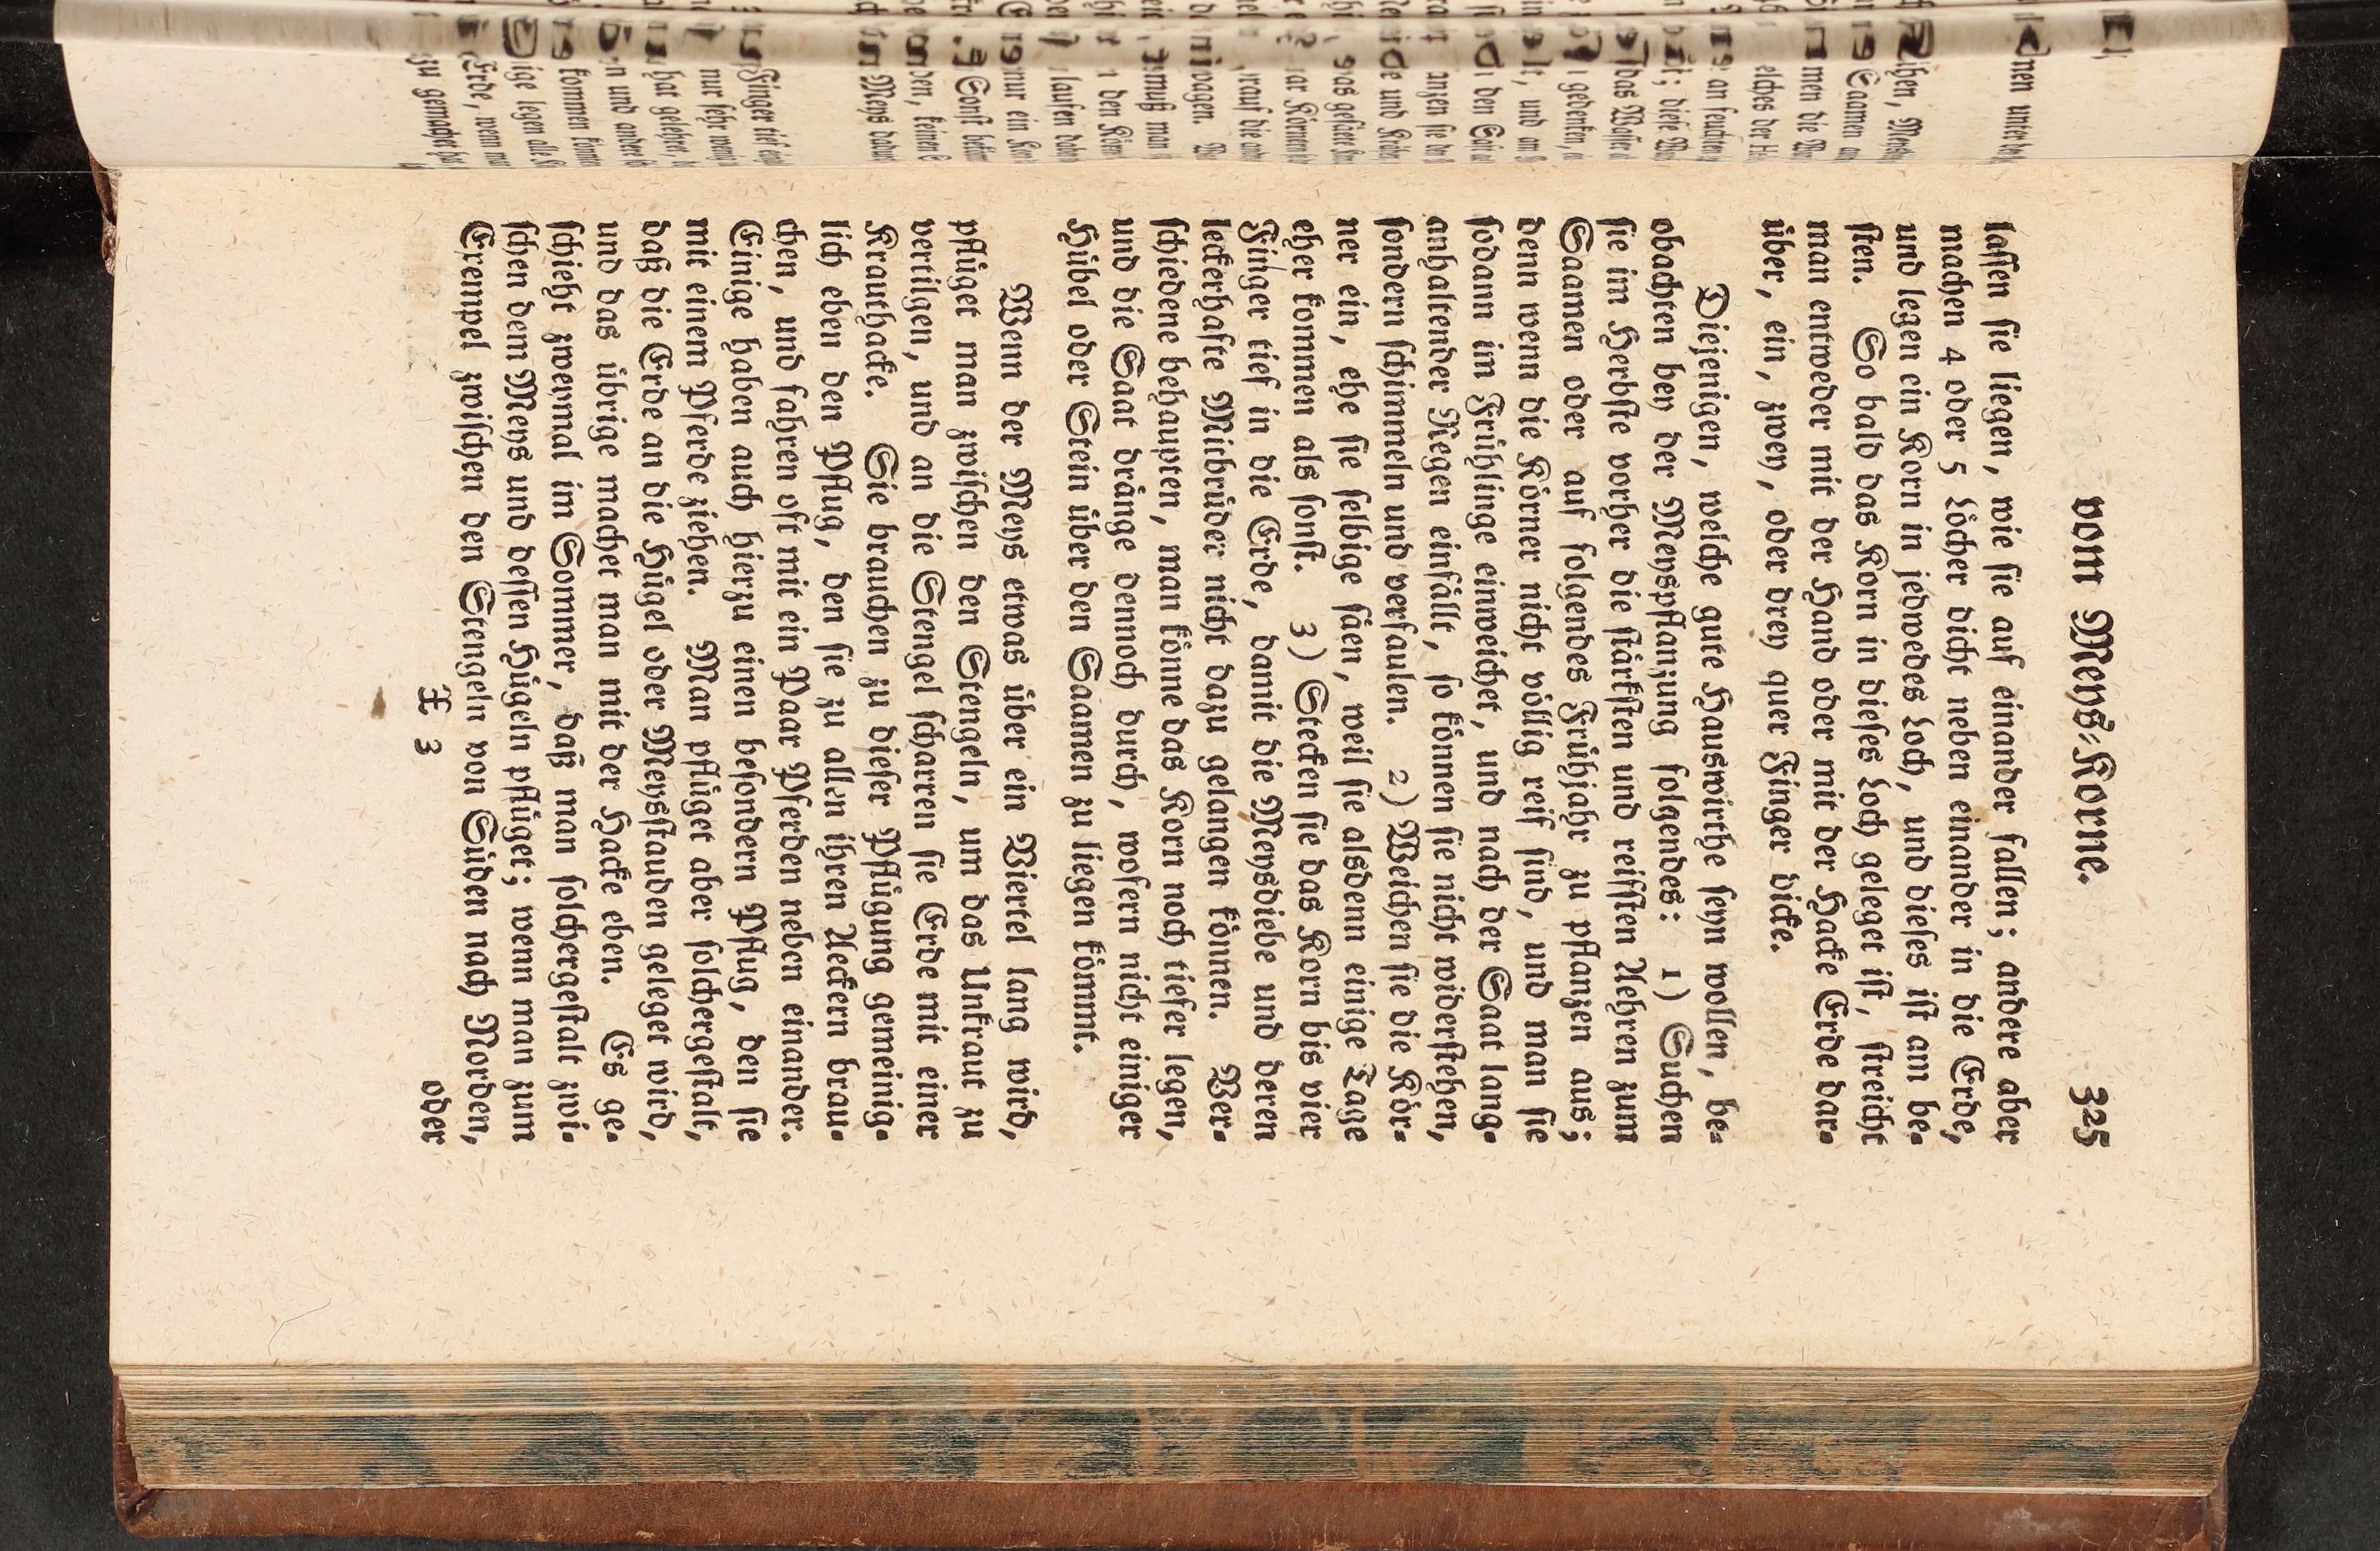 vom Meys-Korne. 325
laſſen ſie liegen, wie ſie auf einander fallen; andere aber
machen 4 oder 5 Löcher dicht neben einander in die Erde,
und legen ein Korn in jedwedes Loch, und dieſes iſt am be-
ſten. So bald das Korn in dieſes Loch geleget iſt, ſtreicht
man entweder mit der Hand oder mit der Hacke Erde dar-
über, ein, zwey, oder drey quer Finger dicke.
Diejenigen, welche gute Hauswirthe ſeyn wollen, be-
obachten bey der Meyspflanzung folgendes: 1) Suchen
ſie im Herbſte vorher die ſtärkſten und reifſten Aehren zum
Saamen oder auf folgendes Frühjahr zu pflanzen aus;
denn wenn die Körner nicht völlig reif ſind, und man ſie
ſodann im Frühlinge einweichet, und nach der Saat lang-
anhaltender Regen einfällt, ſo können ſie nicht widerſtehen,
ſondern ſchimmeln und verfaulen. 2) Weichen ſie die Kör-
ner ein, ehe ſie ſelbige ſäen, weil ſie alsdenn einige Tage
eher kommen als ſonſt. 3) Stecken ſie das Korn bis vier
Finger tief in die Erde, damit die Meysdiebe und deren
leckerhafte Mitbrüder nicht dazu gelangen können. Ver-
ſchiedene behaupten, man könne das Korn noch tiefer legen,
und die Saat dränge dennoch durch, wofern nicht einiger
Hübel oder Stein über den Saamen zu liegen kömmt.
Wenn der Meys etwas über ein Viertel lang wird,
pflüget man zwiſchen den Stengeln, um das Unkraut zu
vertilgen, und an die Stengel ſcharren ſie Erde mit einer
Krauthacke. Sie brauchen zu dieſer Pflügung gemeinig-
lich eben den Pflug, den ſie zu allen ihren Aeckern brau-
chen, und fahren oft mit ein Paar Pferden neben einander.
Einige haben auch hierzu einen beſondern Pflug, den ſie
mit einem Pferde ziehen. Man pflüget aber ſolchergeſtalt,
daß die Erde an die Hügel oder Meysſtauden geleget wird,
und das übrige machet man mit der Hacke eben. Es ge-
ſchieht zweymal im Sommer, daß man ſolchergeſtalt zwi-
ſchen dem Meys und deſſen Hügeln pflüget; wenn man zum
Exempel zwiſchen den Stengeln von Süden nach Norden,
X 3 oder